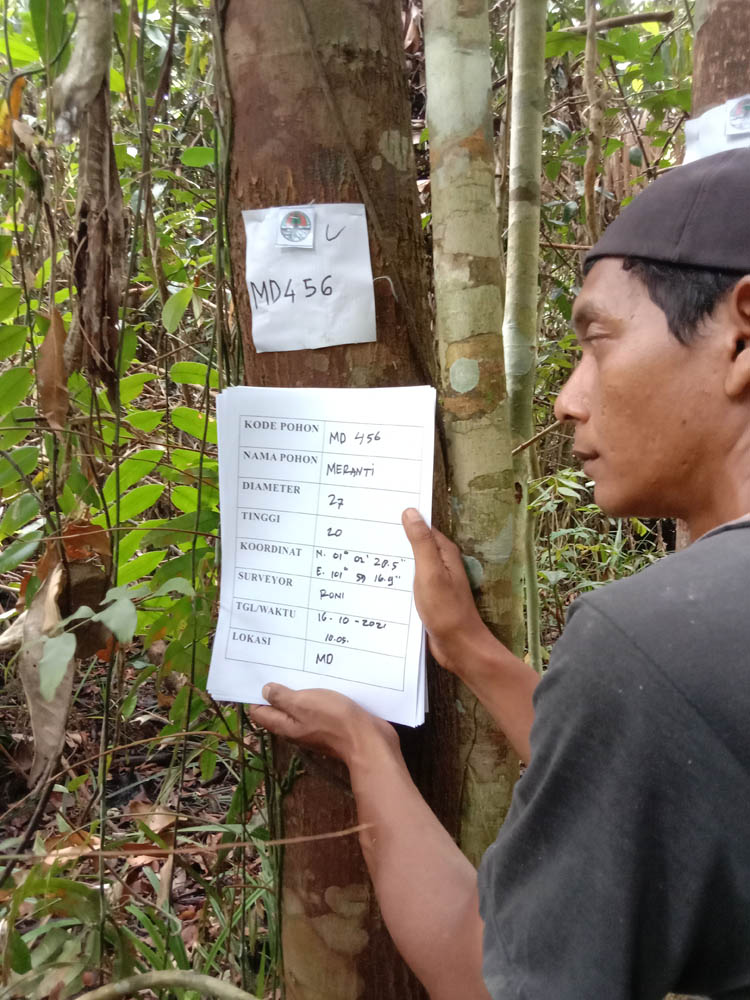 MD456
KODE POHON MD 456
NAMA POHON MERANTI
DIAMETER 27
TINGGI 20
KOORDINAT N. 01° 02' 20.5"
E. 101° 59 16.9"
SURVEYOR RONI
TGL/WAKTU 16-10-2021
10.05.
LOKASI MD